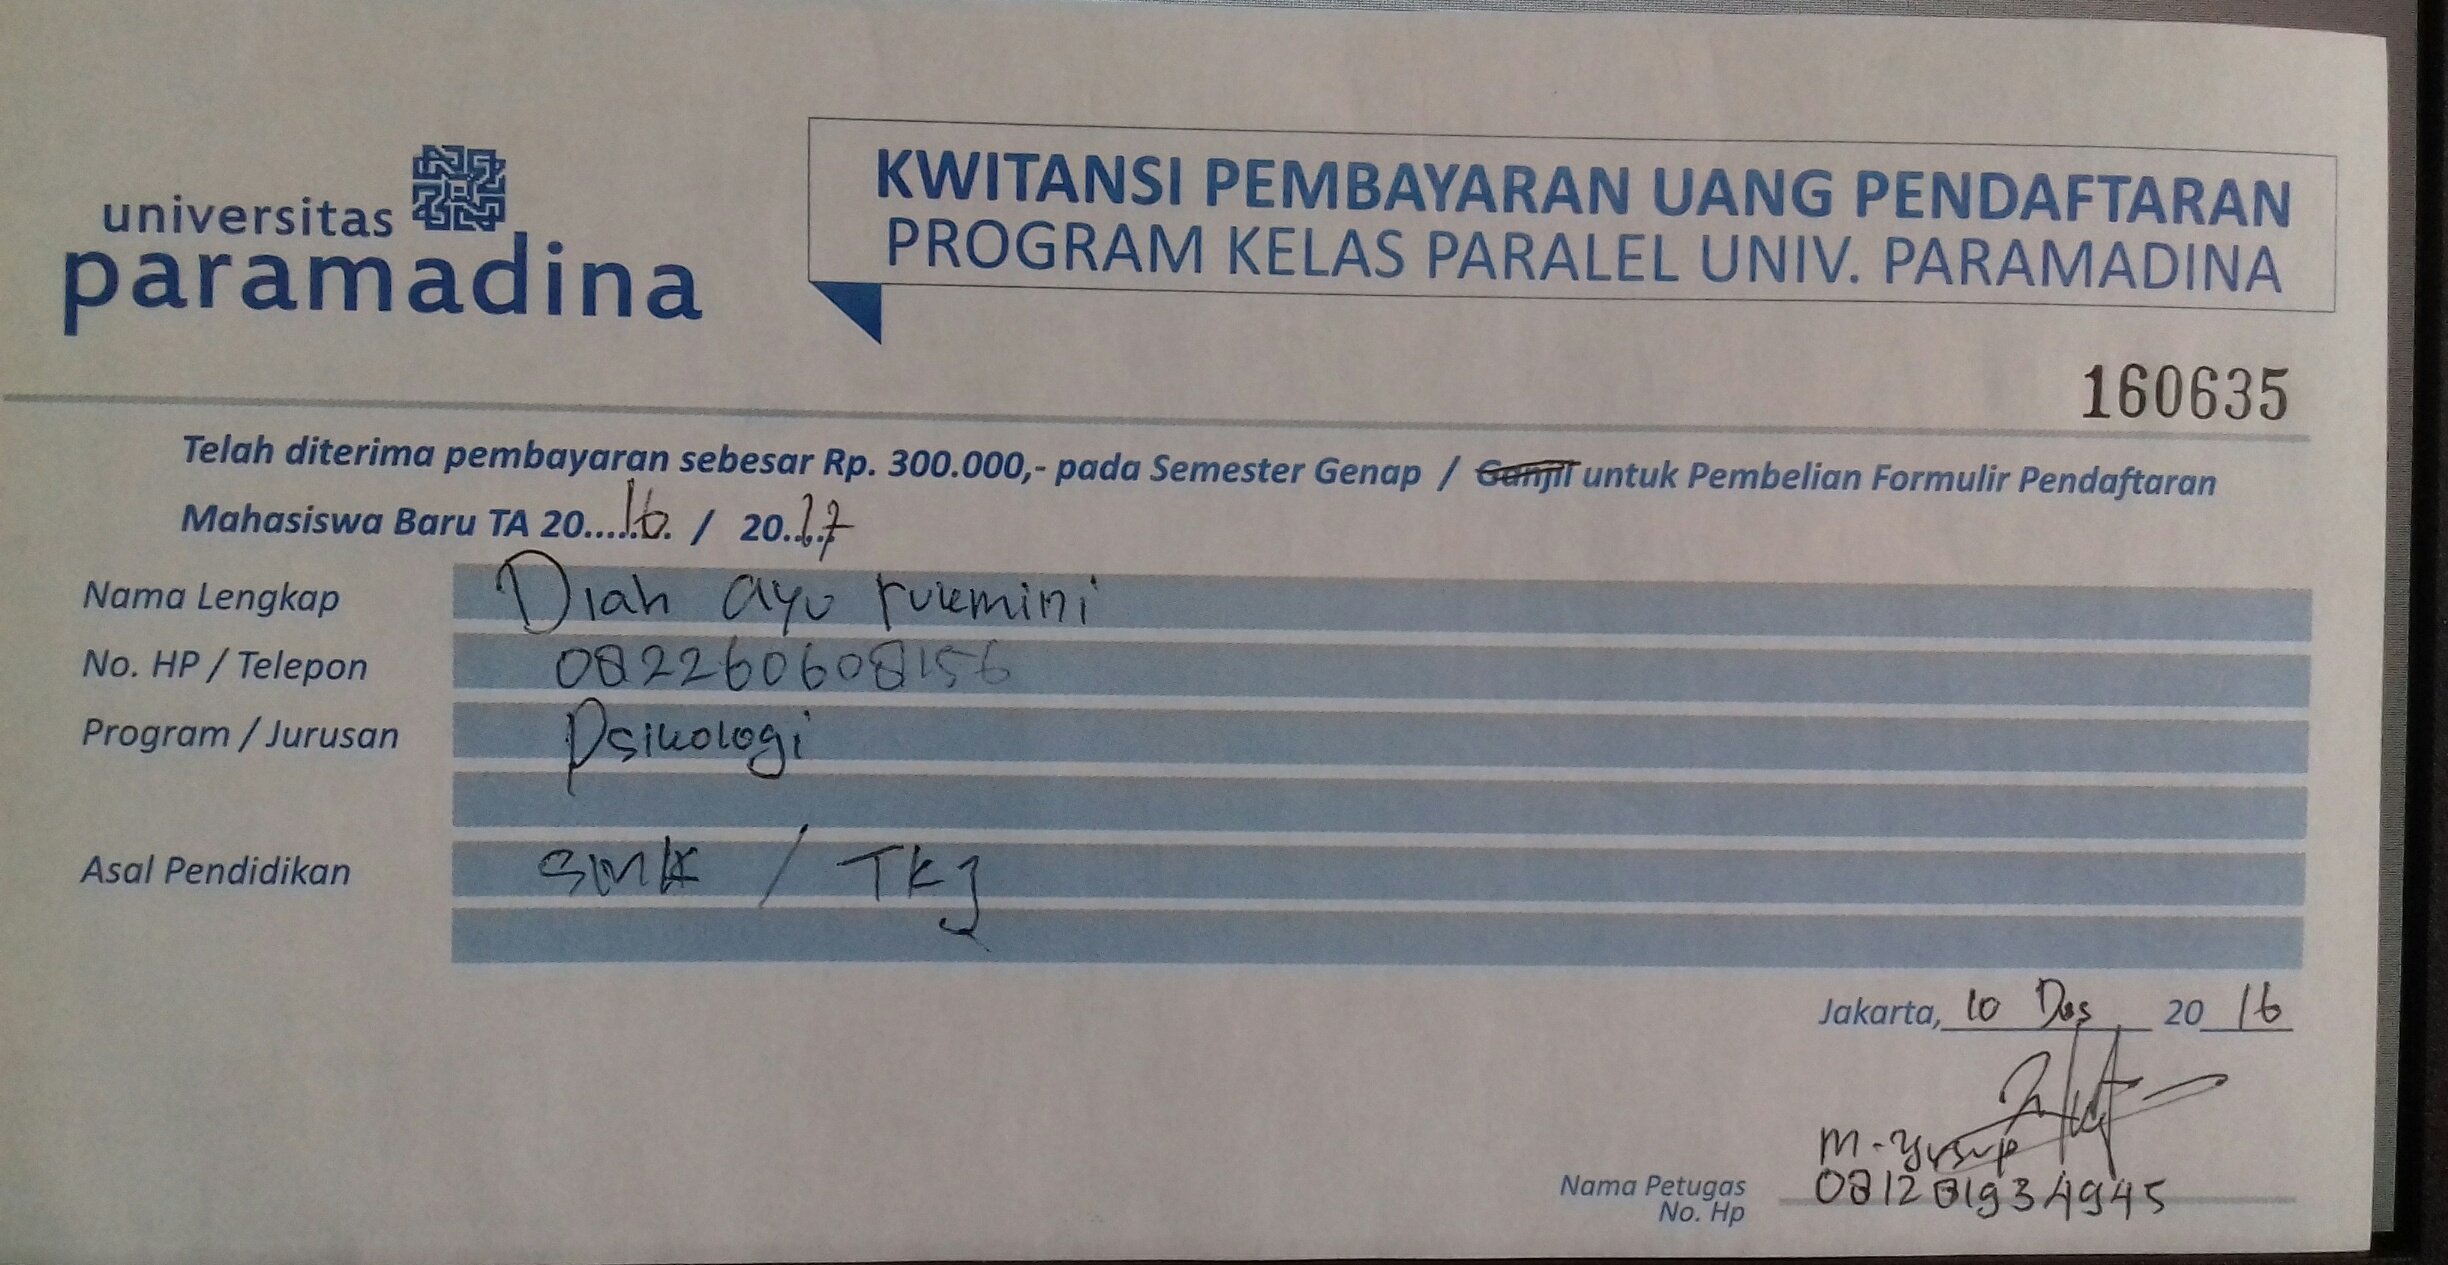 universitas
paramadina
KWITANSI PEMBAYARAN UANG PENDAFTARAN
PROGRAM KELAS PARALEL UNIV. PARAMADINA
160635
Telah diterima pembayaran sebesar Rp. 300.000,- pada Semester Genap / Ganjil untuk Pembelian Formulir Pendaftaran
Mahasiswa Baru TA 20.....16. / 20..17
Nama Lengkap Diah ayu rukmini
No. HP / Telepon 082260608156
Program / Jurusan Psikologi
Asal Pendidikan SMK / TKJ
Jakarta, 10 Des 20 16
M. Yusup
Nama Petugas 081281934945
No. Hp